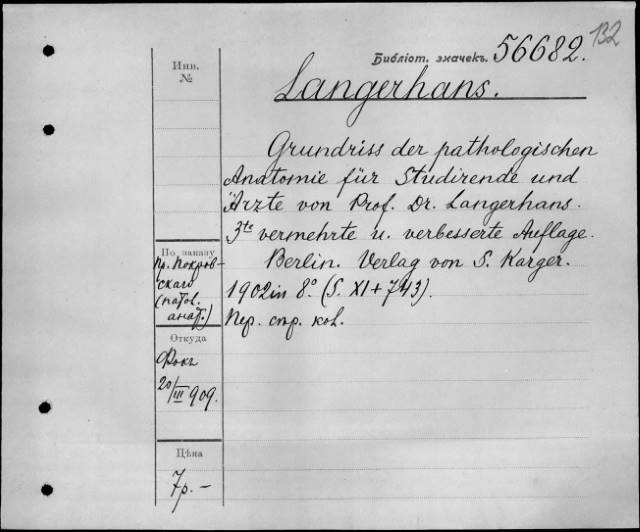 132
Библіот. значекъ. 56682.
Инв.
№
Langerhans.
Grundriss der pathologischen
Anatomie für Studirende und
Ärzte von Prof. Dr. Langerhans.
3te vermehrte u. verbesserte Auflage.
Berlin. Verlag von S. Karger.
1902 in 8° (S. XI + 743).
Пер. стр. кол.
По заказу
Пр. Покров-
скаго
(патол.
анат.)
Откуда
Фокъ
20/III 909.
Цѣна
7р. -